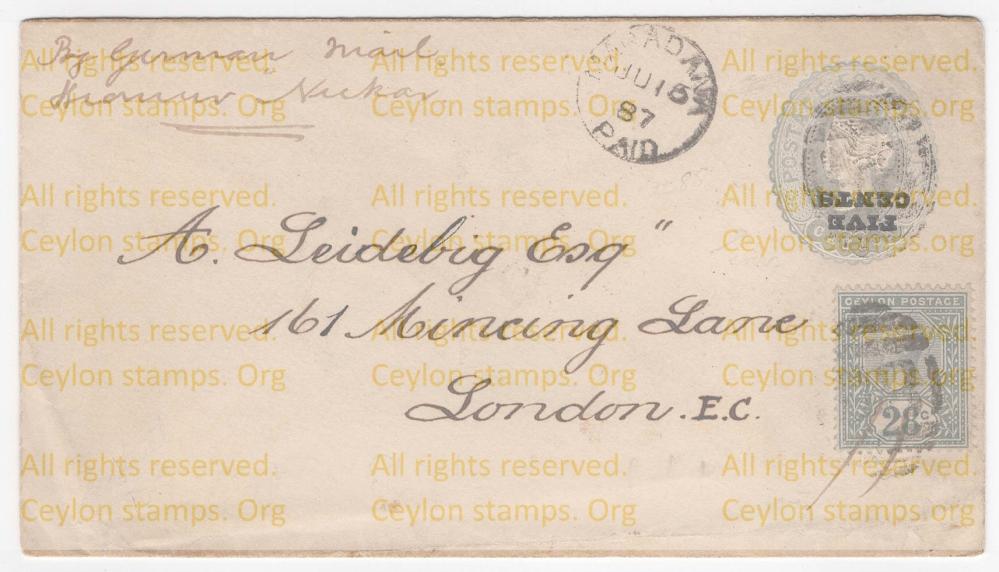 By German Mail.
CEYLON POSTAGE
JU 15
87
PAID
POST
FIVE
CENTS
A. Leidebig Esq"
161 Mincing Lane
London. E.C.
28 C
All rights reserved. All rights reserved. All rights reserved.
Ceylon stamps. Org Ceylon stamps. Org Ceylon stamps. Org
All rights reserved. All rights reserved. All rights reserved.
Ceylon stamps. Org Ceylon stamps. Org Ceylon stamps. Org
All rights reserved. All rights reserved. All rights reserved.
Ceylon stamps. Org Ceylon stamps. Org Ceylon stamps. Org
All rights reserved. All rights reserved. All rights reserved.
Ceylon stamps. Org Ceylon stamps. Org Ceylon stamps. Org